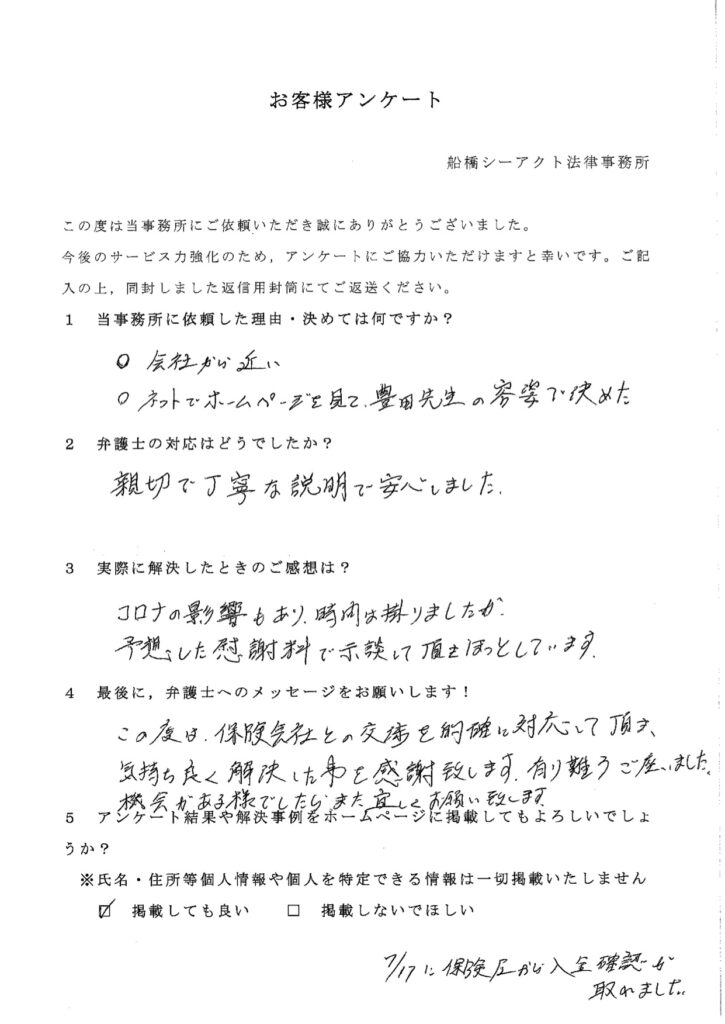 お客様アンケート
船橋シーアクト法律事務所
この度は当事務所にご依頼いただき誠にありがとうございました。
今後のサービス力強化のため，アンケートにご協力いただけますと幸いです。ご記
入の上，同封しました返信用封筒にてご返送ください。
1 当事務所に依頼した理由・決めては何ですか？
○ 会社から近い
○ ネットでホームページを見て、豊田先生の容姿で決めた
2 弁護士の対応はどうでしたか？
親切で丁寧な説明で安心しました.
3 実際に解決したときのご感想は？
コロナの影響もあり、時間は掛りましたが、
予想した慰謝料で示談して頂きほっとしています.
4 最後に，弁護士へのメッセージをお願いします！
この度は、保険会社との交渉を的確に対応して頂き、
気持ち良く解決した事を感謝致します.有り難うご座いました。
機会がある様でしたらまた宜しくお願い致します.
5 アンケート結果や解決事例をホームページに掲載してもよろしいでしょ
うか？
※氏名・住所等個人情報や個人を特定できる情報は一切掲載いたしません
☑ 掲載しても良い □ 掲載しないでほしい
7/17に保険屋から入金確認が
取れました。